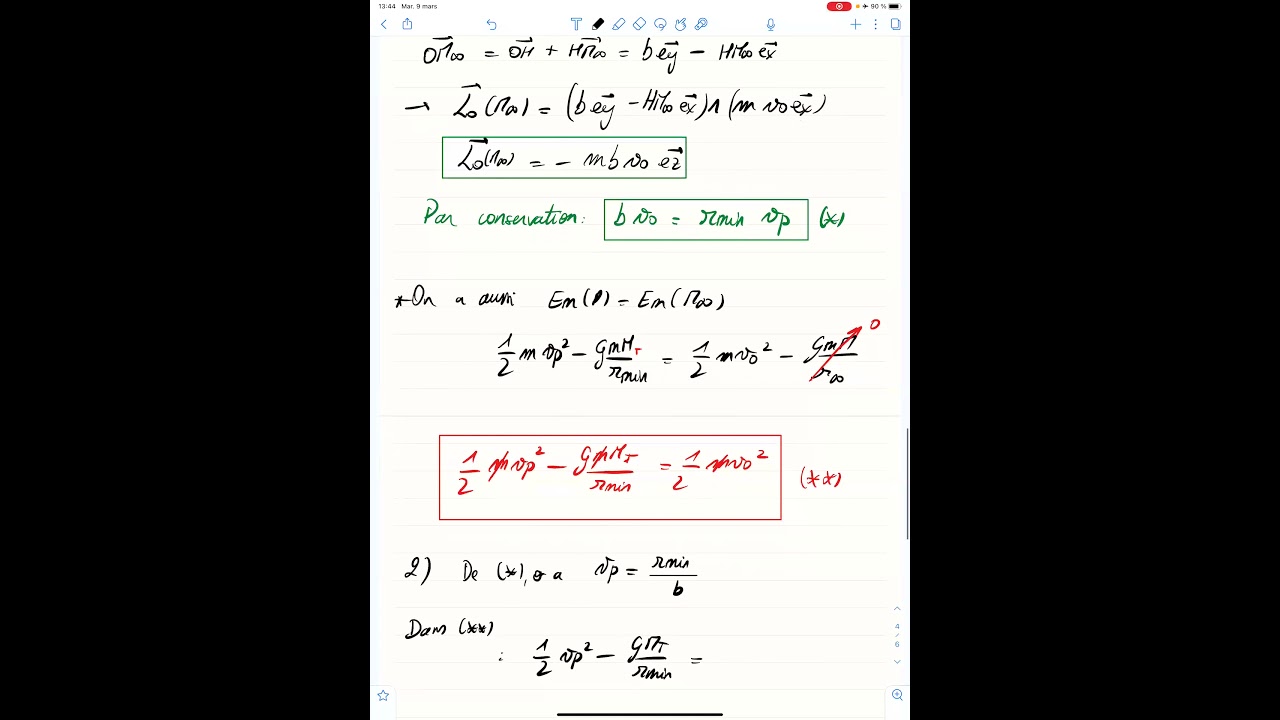 13:44 Mar. 9 mars 90 %
OM∞ = OH + HM∞ = b ey - HM∞ ex
→ Lo(M∞) = (b ey - HM∞ ex) ∧ (m v0 ex)
Lo(M∞) = - m b v0 ez
Par conservation: b v0 = rmin vp (*)
* On a aussi Em(P) = Em(M∞)
1/2 m vp² - GmMT/rmin = 1/2 m v0² - GmM/r∞ 0
1/2 m vp² - GmMT/rmin = 1/2 m v0² (**)
2) De (*), on a vp = rmin/b
Dans (**)
: 1/2 vp² - GMT/rmin =
4
/
6